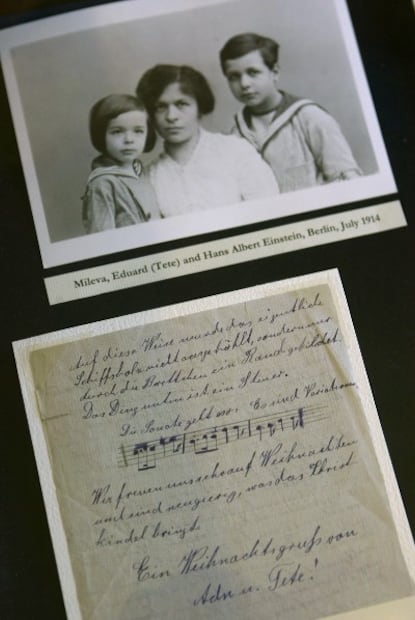 Mileva, Eduard (Tete) and Hans Albert Einstein, Berlin, July 1914
Auf diese Weise wurde das eigentliche
Schiffsholz nicht ausgehöhlt, sondern nur
durch die Brettchen ein Rand gebildet.
Das Ding unten ist ein Steuer.
Die Sonate geht so: Es sind Variationen
Wir freuen uns sehr auf Weihnachten
und sind neugierig, was das Christ
kindel bringt.
Ein Weihnachtsgruss von
Adn u. Tete!